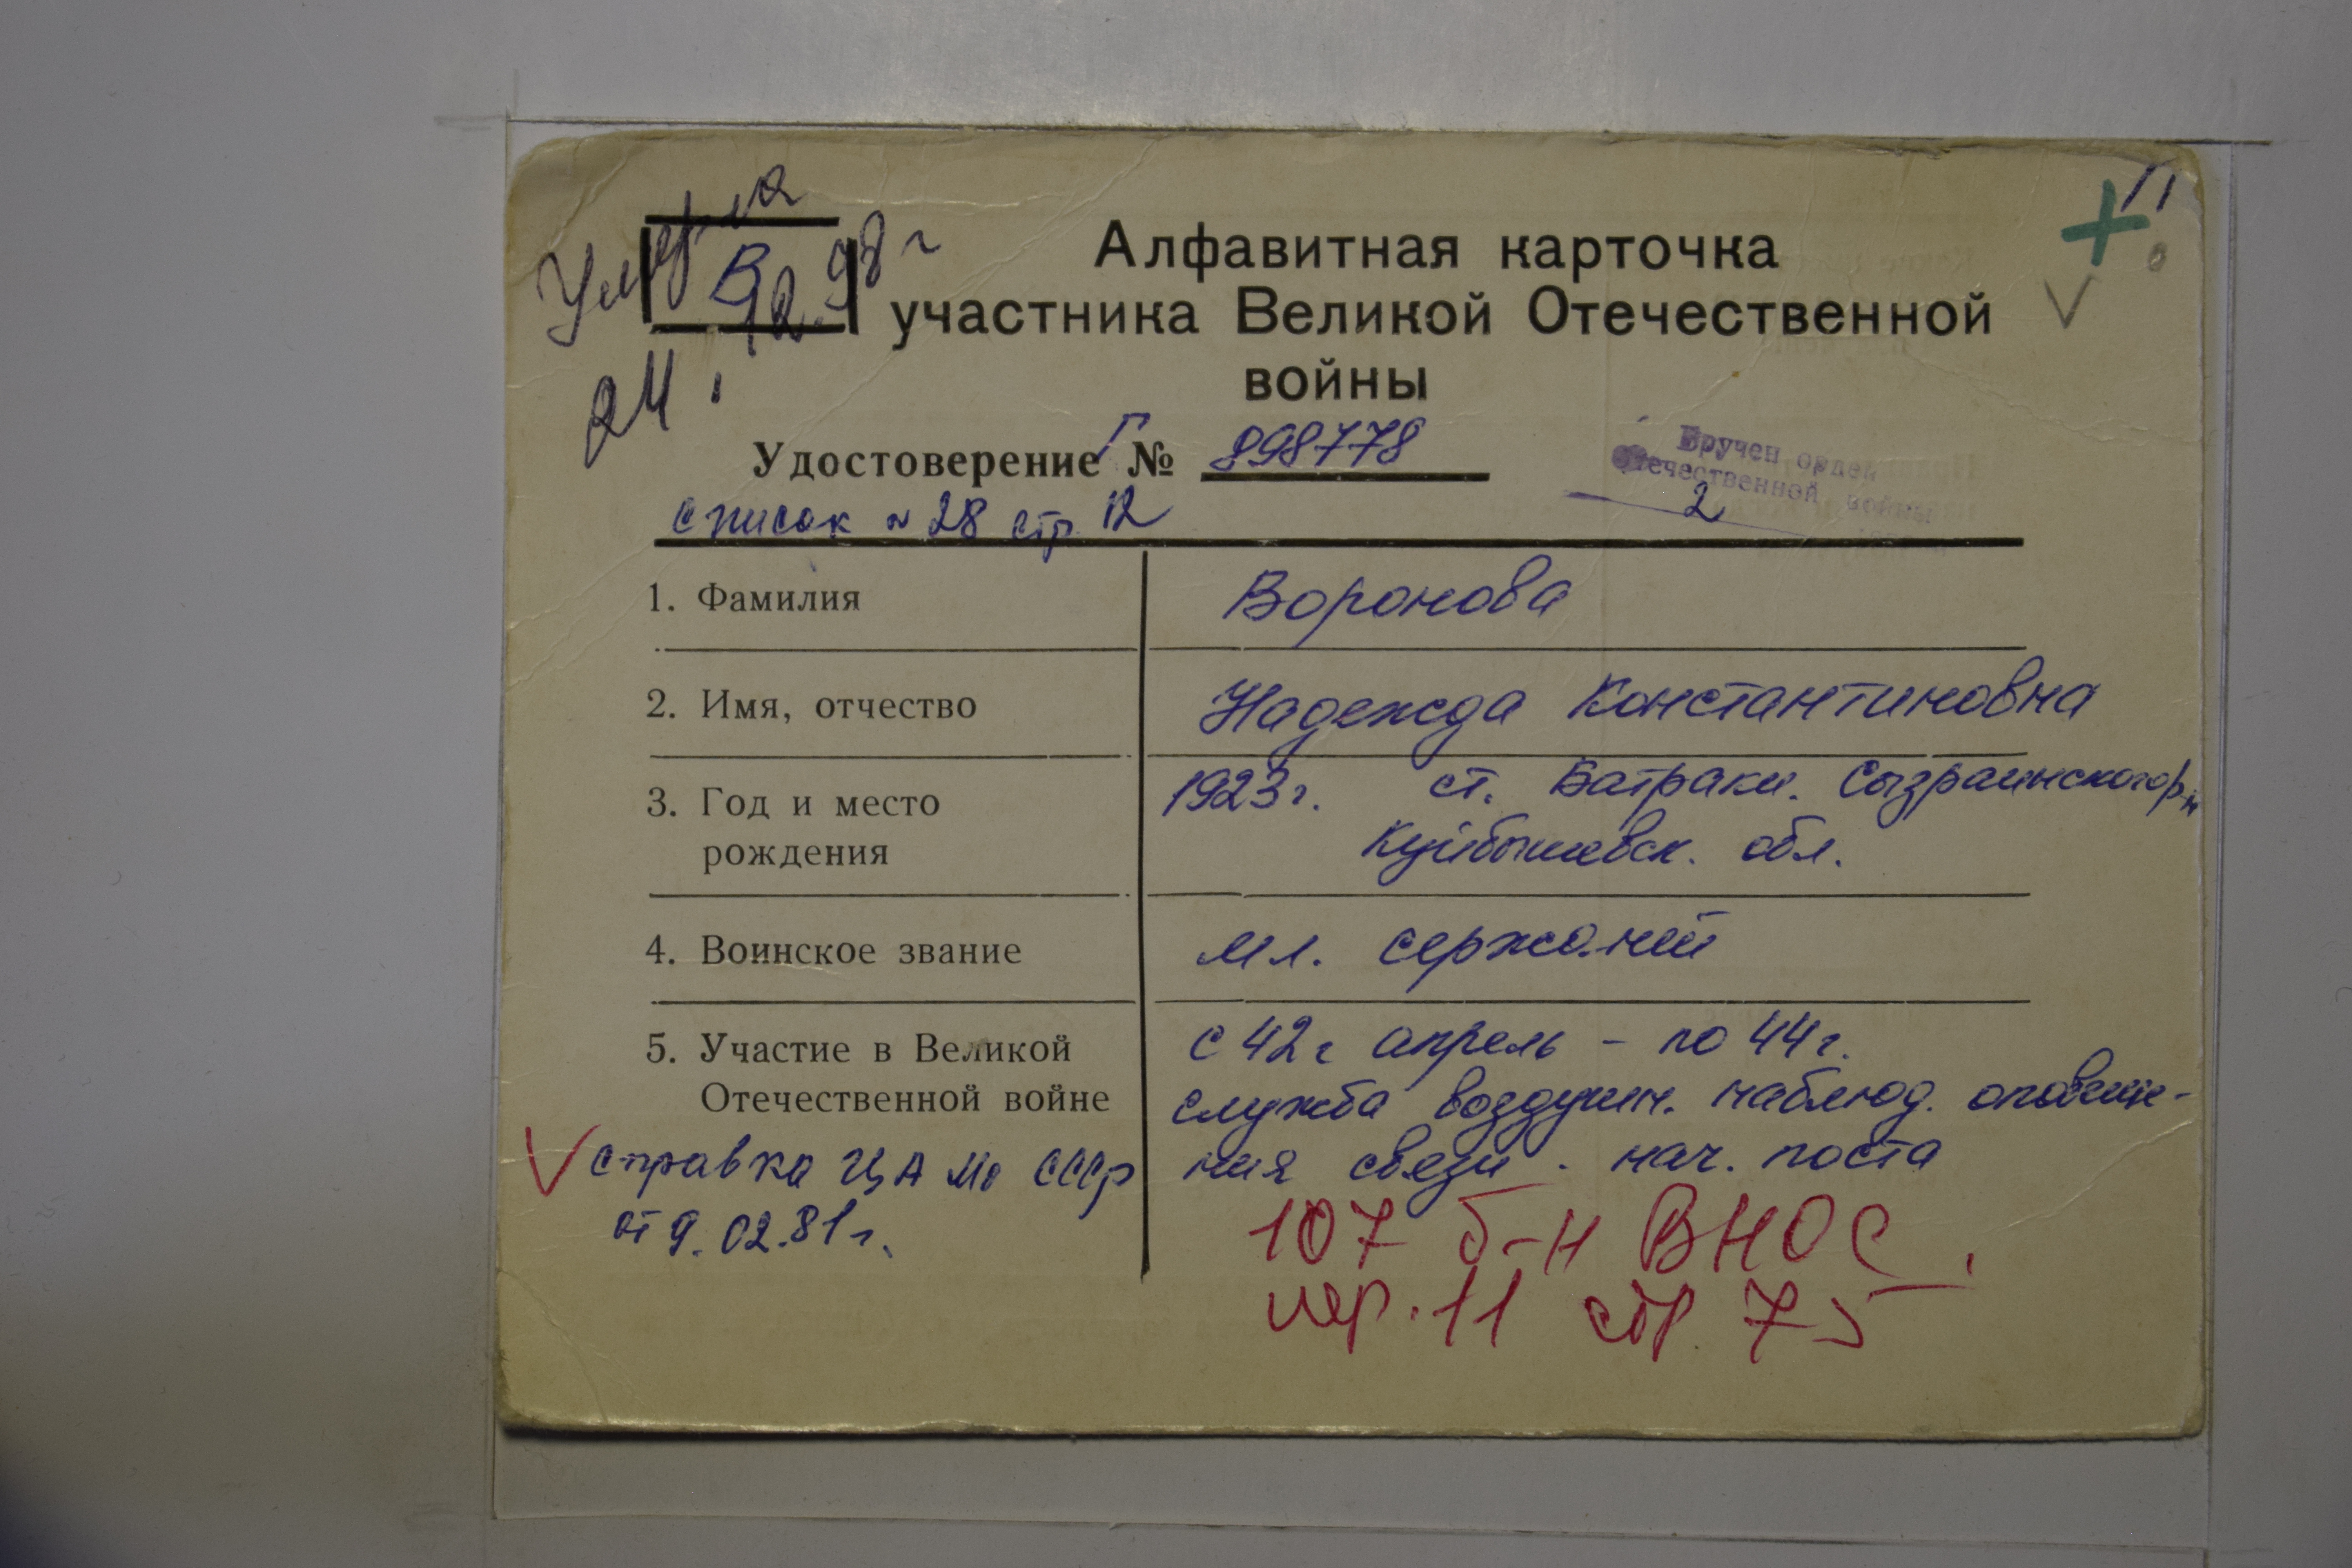 Умерла
В
24.12.98 г
Алфавитная карточка
участника Великой Отечественной
войны
Удостоверение Г № 898778
список № 28 стр. 12
Вручен орден
Отечественной войны
2
1. Фамилия Воронова
2. Имя, отчество Надежда Константиновна
3. Год и место 1923г. ст. Батраки. Сызранского р-н
рождения Куйбышевск. обл.
4. Воинское звание мл. сержант
5. Участие в Великой с 42г апрель - по 44г.
Отечественной войне служба воздушн. наблюд. оповеще-
ния связи. нач. поста
справка ЦА МО СССР
от 9.02.81г.
107 б-н ВНОС.
пер. 11 стр. 75